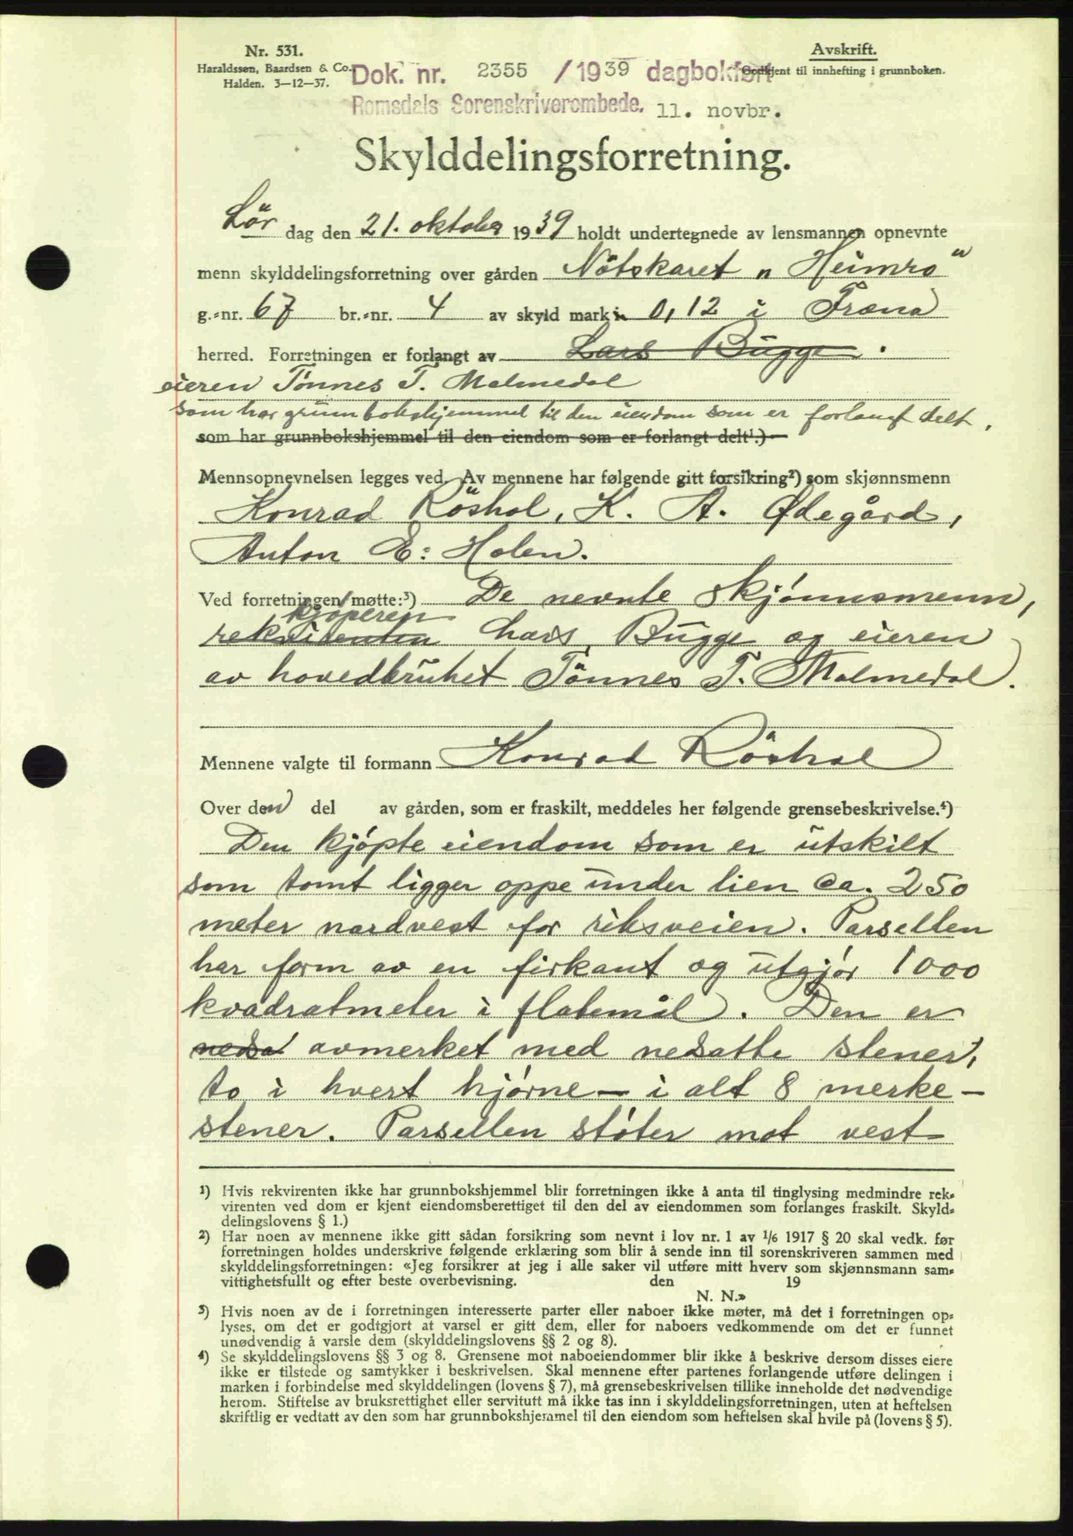 Nr. 531.
Haraldssen, Baardsen & Co.
Halden. 3—12—37.
Avskrift.
Godkjent til innhefting i grunnboken.
Dok. nr. 2355 / 1939 dagbokført
Romsdals Sorenskriverembede. 11. novbr.
Skylddelingsforretning.
Lör dag den 21. oktober 1939 holdt undertegnede av lensmannen opnevnte
menn skylddelingsforretning over gården Nötskaret „Heimro"
g.-nr. 67 br.-nr. 4 av skyld mark 0,12 i Fræna
herred. Forretningen er forlangt av Lars Bugge.
eieren Tønnes T. Malmedal
som har grunnbokshjemmel til den eiendom som er forlangt delt.
som har grunnbokshjemmel til den eiendom som er forlangt delt¹.)
Mennsopnevnelsen legges ved. Av mennene har følgende gitt forsikring²) som skjønnsmenn
Konrad Röshol, K. A. Ødegård,
Anton E. Holen.
Ved forretningen møtte:³) De nevnte skjønnsmenn,
kjøperen
rekvirenten Lars Bugge og eieren
av hovedbruket Tönnes T. Malmedal.
Mennene valgte til formann Konrad Röshol
Over den del av gården, som er fraskilt, meddeles her følgende grensebeskrivelse.⁴)
Den kjøpte eiendom som er utskilt
som tomt ligger oppe under lien ca. 250
meter nordvest for riksveien. Parsellen
har form av en firkant og utgjør 1000
kvadratmeter i flatemål. Den er
nedsa avmerket med nedsatte stener,
to i hvert hjørne — i alt 8 merke-
stener. Parsellen støter mot vest
¹) Hvis rekvirenten ikke har grunnbokshjemmel blir forretningen ikke å anta til tinglysing medmindre rek-
virenten ved dom er kjent eiendomsberettiget til den del av eiendommen som forlanges fraskilt. Skyld-
delingslovens § 1.)
²) Har noen av mennene ikke gitt sådan forsikring som nevnt i lov nr. 1 av 1/6 1917 § 20 skal vedk. før
forretningen holdes underskrive følgende erklæring som blir å sende inn til sorenskriveren sammen med
skylddelingsforretningen: «Jeg forsikrer at jeg i alle saker vil utføre mitt hverv som skjønnsmann sam-
vittighetsfullt og efter beste overbevisning. den 19
N. N.»
³) Hvis noen av de i forretningen interesserte parter eller naboer ikke møter, må det i forretningen op-
lyses, om det er godtgjort at varsel er gitt dem, eller for naboers vedkommende om det er funnet
unødvendig å varsle dem (skylddelingslovens §§ 2 og 8).
⁴) Se skylddelingslovens §§ 3 og 8. Grensene mot naboeiendommer blir ikke å beskrive dersom disses eiere
ikke er tilstede og samtykker i beskrivelsen. Skal mennene efter partenes forlangende utføre delingen i
marken i forbindelse med skylddelingen (lovens § 7), må grensebeskrivelsen tillike inneholde det nødvendige
herom. Stiftelse av bruksrettighet eller servitutt må ikke tas inn i skylddelingsforretningen, uten at heftelsen
skriftlig er vedtatt av den som har grunnbokshjemmel til den eiendom som heftelsen skal hvile på (lovens § 5).